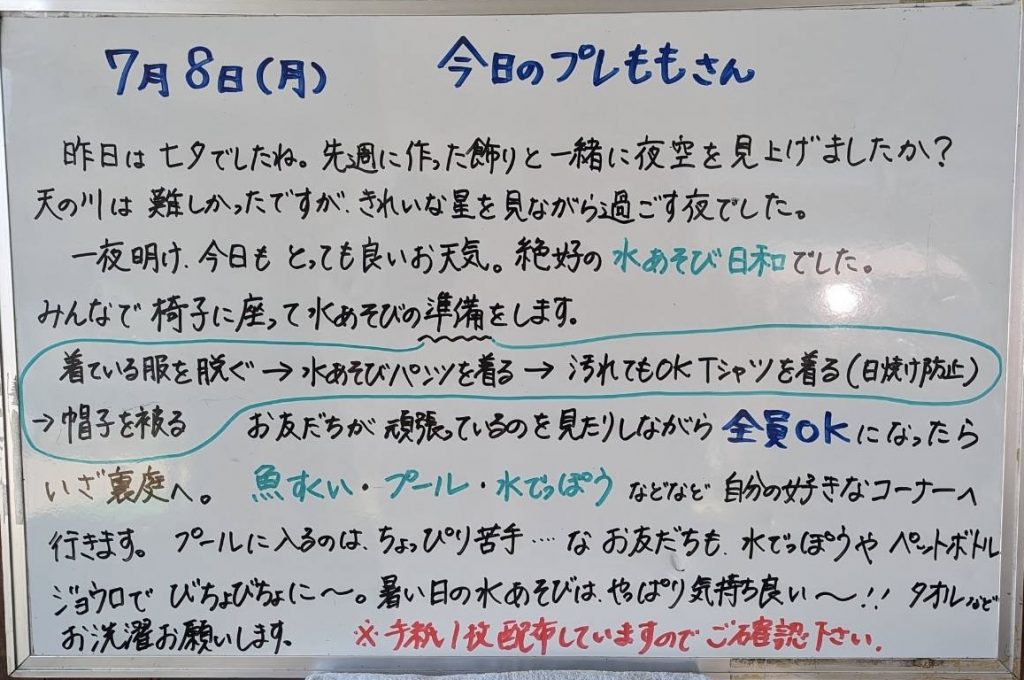 7月8日(月) 今日のプレももさん
昨日は七夕でしたね。先週に作った飾りと一緒に夜空を見上げましたか?
天の川は難しかったですが、きれいな星を見ながら過ごす夜でした。
一夜明け、今日もとっても良いお天気。絶好の水あそび日和でした。
みんなで椅子に座って水あそびの準備をします。
着ている服を脱ぐ→水あそびパンツを着る→汚れてもOKTシャツを着る(日焼け防止)
→帽子を被る お友だちが頑張っているのを見たりしながら全員OKになったら
いざ裏庭へ。魚すくい・プール・水でっぽうなどなど自分の好きなコーナーへ
行きます。プールに入るのは、ちょっぴり苦手‥‥なお友だちも、水でっぽうやペットボトル
ジョウロでびちょびちょに〜。暑い日の水あそびは、やっぱり気持ち良い〜!!タオルなど
お洗濯お願いします。 ※手紙1枚配布していますのでご確認下さい.